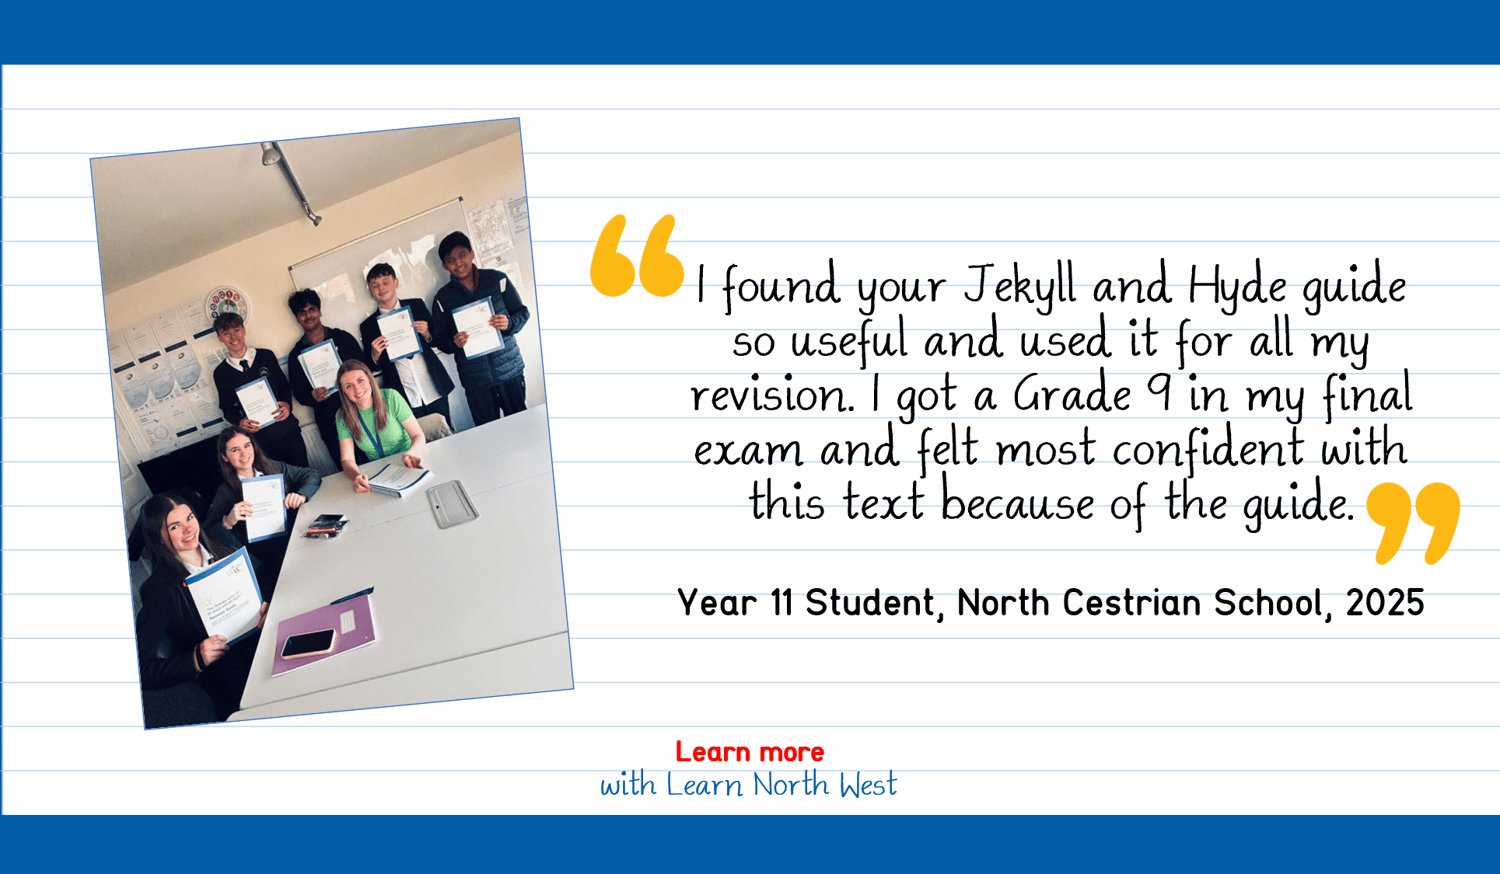 I found your Jekyll and Hyde guide
so useful and used it for all my
revision. I got a Grade 9 in my final
exam and felt most confident with
this text because of the guide.
Year 11 Student, North Cestrian School, 2025
Learn more
with Learn North West